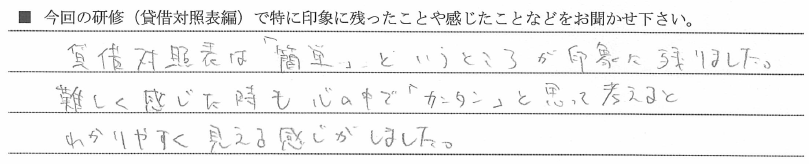 ■ 今回の研修（貸借対照表編）で特に印象に残ったことや感じたことなどをお聞かせ下さい。
貸借対照表は「簡単」というところが印象に残りました。
難しく感じた時も心の中で「カンタン」と思って考えると
わかりやすく見える感じがしました。